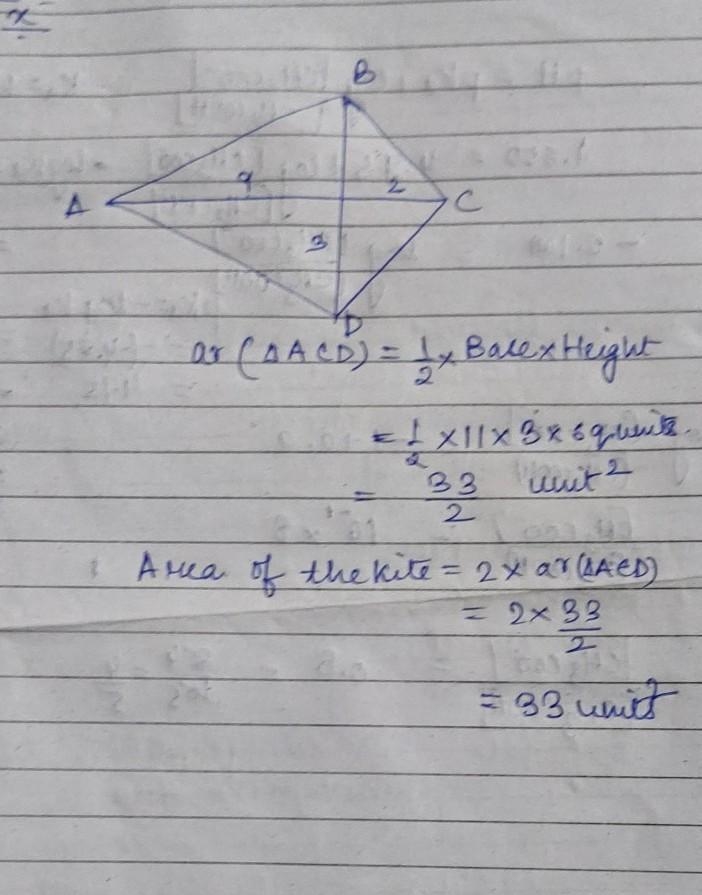 x
B
A 9 2 C
3
D
ar (ΔACD) = 1/2 × Base × Height
= 1/2 × 11 × 3 × sq units.
= 33/2 unit²
Area of the kite = 2 × ar(ΔACD)
= 2 × 33/2
= 33 unit²